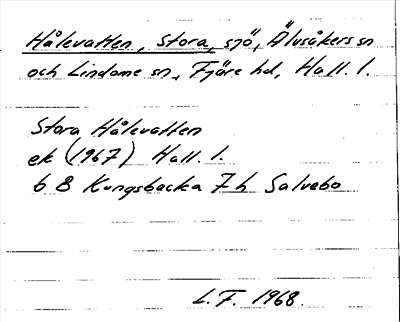 Hålevatten, Stora, sjö, Älvsåkers sn
och Lindome sn, Fjäre hd, Hall. l.
Stora Hålevatten
ek (1967) Hall. l.
6 B Kungsbacka 7 h Salvebo
L.F. 1968.